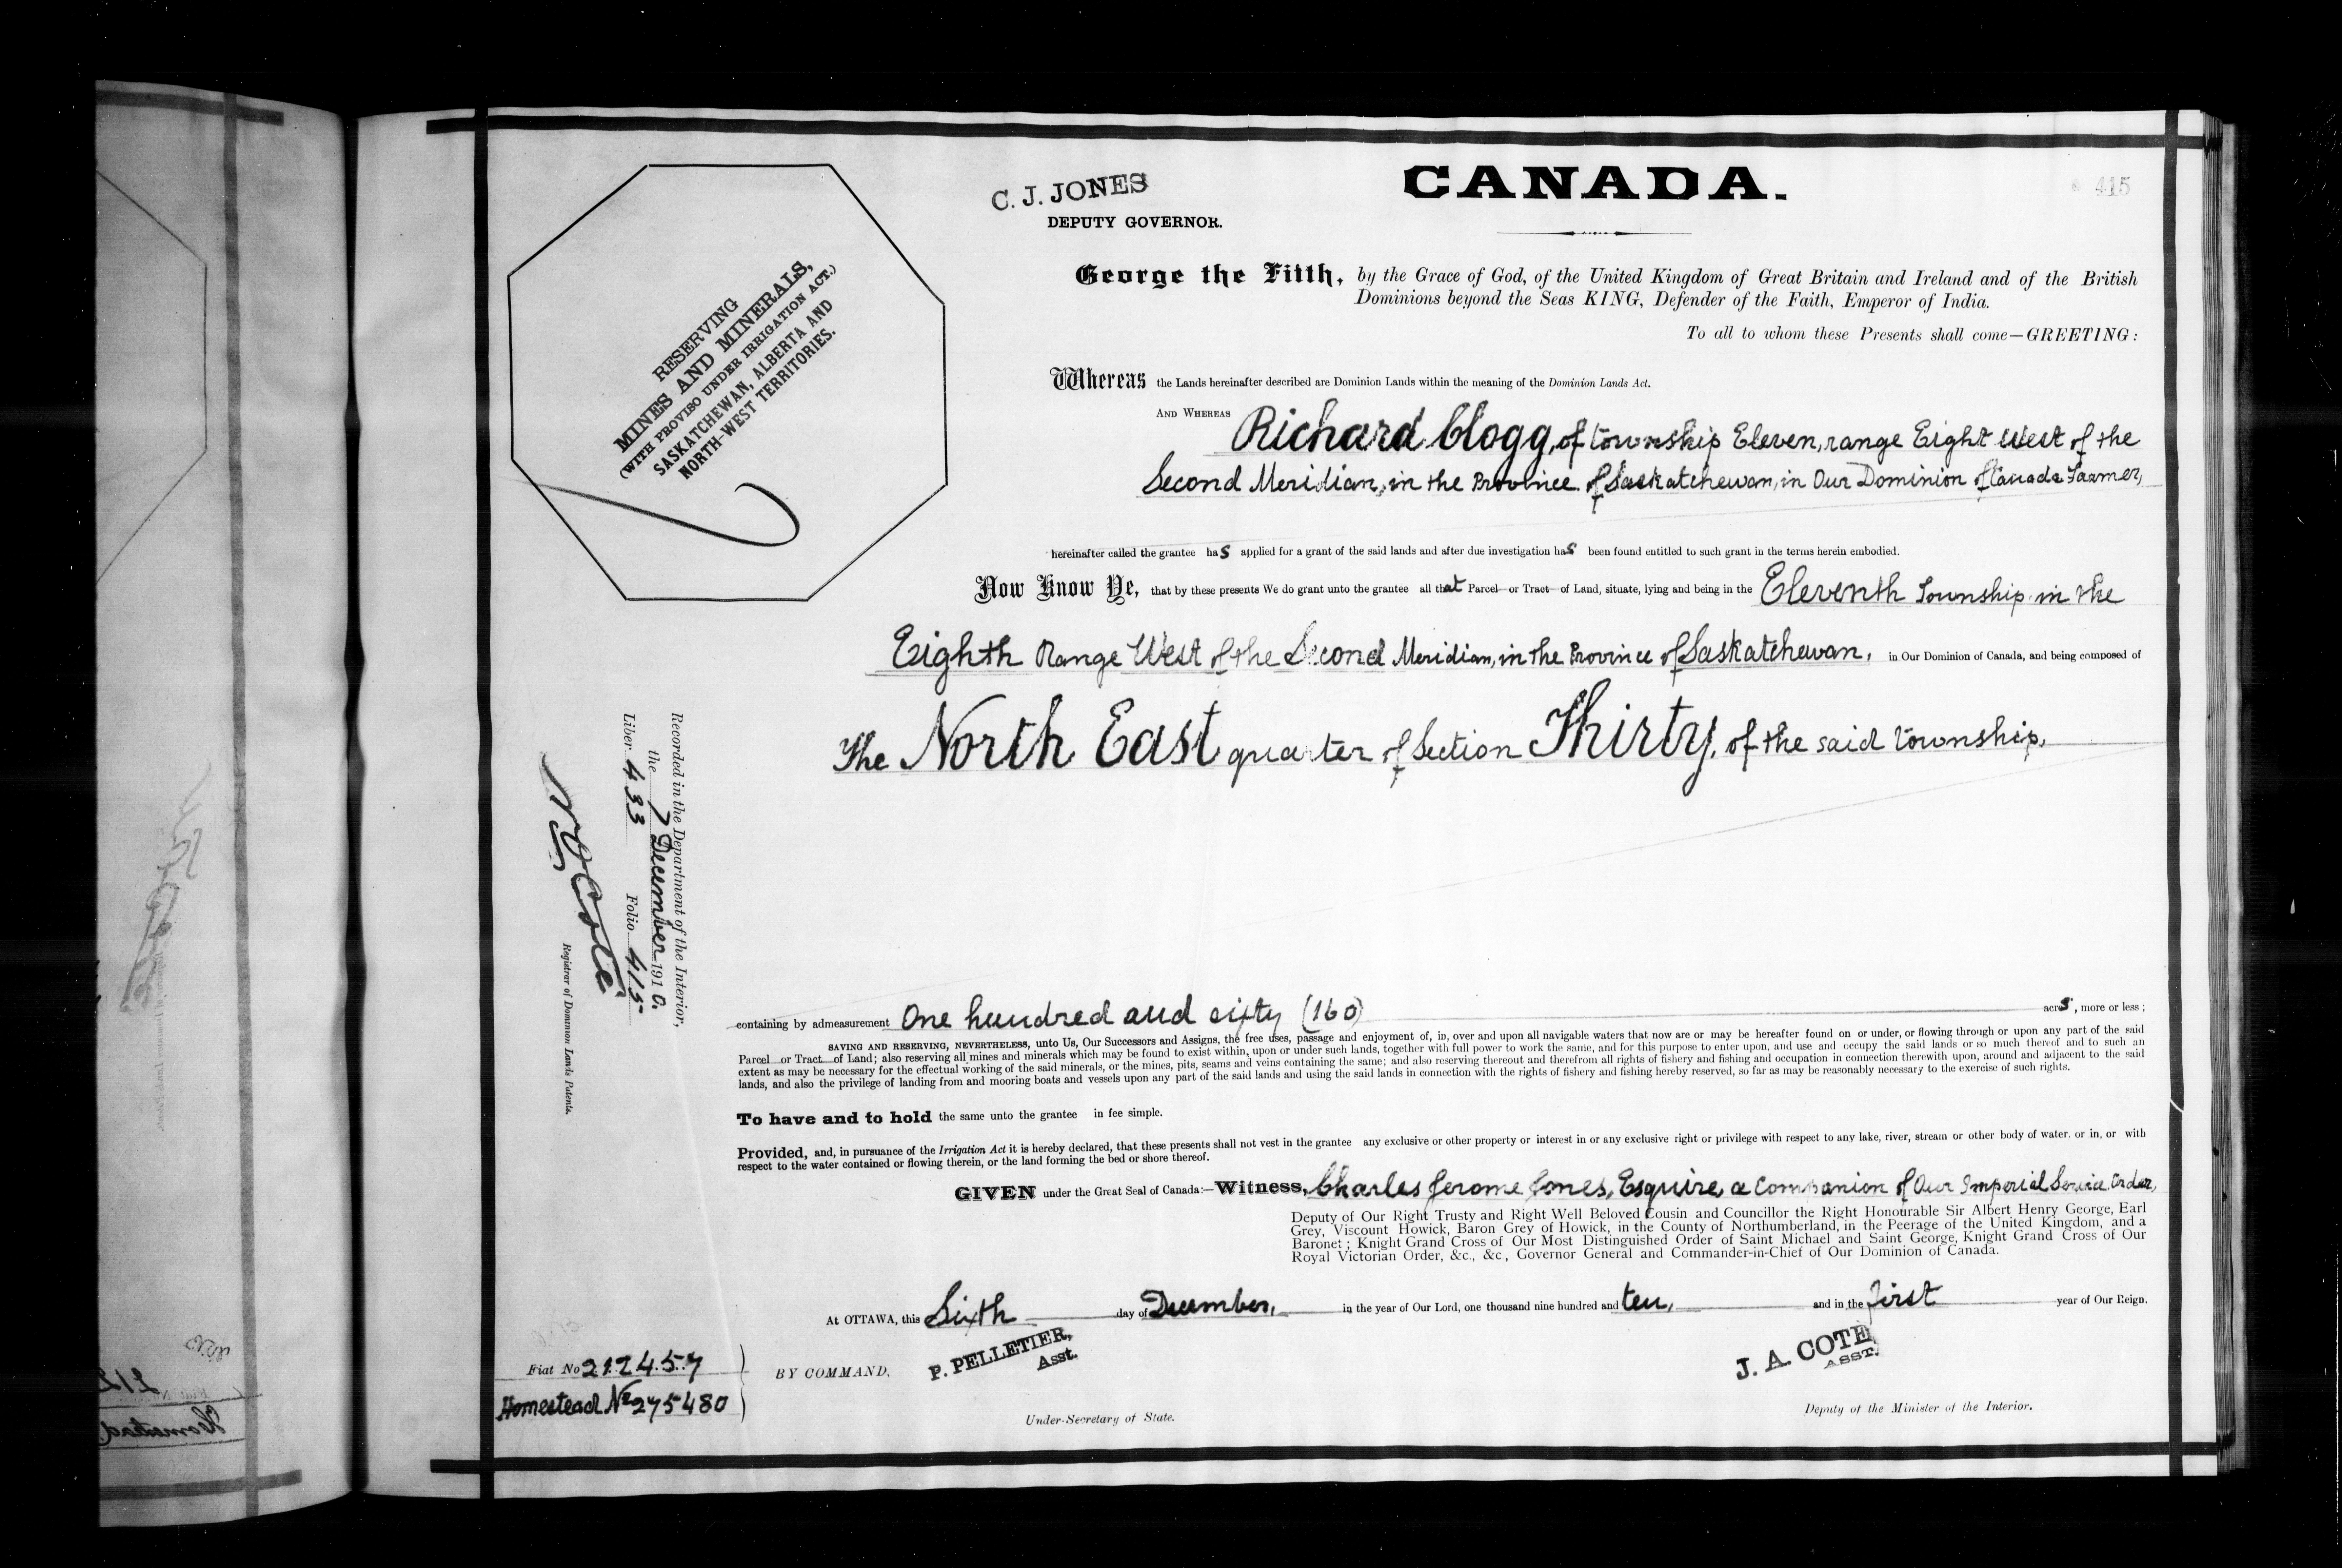 C. J. JONES
DEPUTY GOVERNOR.
CANADA.
415
RESERVING
MINES AND MINERALS,
(WITH PROVISO UNDER IRRIGATION ACT.)
SASKATCHEWAN, ALBERTA AND
NORTH-WEST TERRITORIES.
George the Fifth, by the Grace of God, of the United Kingdom of Great Britain and Ireland and of the British
Dominions beyond the Seas KING, Defender of the Faith, Emperor of India.
To all to whom these Presents shall come—GREETING:
Whereas the Lands hereinafter described are Dominion Lands within the meaning of the Dominion Lands Act.
AND WHEREAS Richard Clogg, of township Eleven, range Eight West of the
Second Meridian, in the Province of Saskatchewan, in Our Dominion of Canada Farmer,
hereinafter called the grantee has applied for a grant of the said lands and after due investigation has been found entitled to such grant in the terms herein embodied.
Now Know Ye, that by these presents We do grant unto the grantee all that Parcel or Tract of Land, situate, lying and being in the Eleventh Township in the
Eighth Range West of the Second Meridian, in the Province of Saskatchewan, in Our Dominion of Canada, and being composed of
The North East quarter of Section Thirty, of the said township,
Recorded in the Department of the Interior,
the 7 December 1910.
Liber 433 Folio 415
Registrar of Dominion Lands Patents.
containing by admeasurement One hundred and sixty (160) acres, more or less;
SAVING AND RESERVING, NEVERTHELESS, unto Us, Our Successors and Assigns, the free uses, passage and enjoyment of, in, over and upon all navigable waters that now are or may be hereafter found on or under, or flowing through or upon any part of the said
Parcel or Tract of Land; also reserving all mines and minerals which may be found to exist within, upon or under such lands, together with full power to work the same, and for this purpose to enter upon, and use and occupy the said lands or so much thereof and to such an
extent as may be necessary for the effectual working of the said minerals, or the mines, pits, seams and veins containing the same; and also reserving thereout and therefrom all rights of fishery and fishing and occupation in connection therewith upon, around and adjacent to the said
lands, and also the privilege of landing from and mooring boats and vessels upon any part of the said lands and using the said lands in connection with the rights of fishery and fishing hereby reserved, so far as may be reasonably necessary to the exercise of such rights.
To have and to hold the same unto the grantee in fee simple.
Provided, and, in pursuance of the Irrigation Act it is hereby declared, that these presents shall not vest in the grantee any exclusive or other property or interest in or any exclusive right or privilege with respect to any lake, river, stream or other body of water. or in, or with
respect to the water contained or flowing therein, or the land forming the bed or shore thereof.
GIVEN under the Great Seal of Canada:—Witness, Charles Jerome Jones, Esquire, a Companion of Our Imperial Service Order,
Deputy of Our Right Trusty and Right Well Beloved Cousin and Councillor the Right Honourable Sir Albert Henry George, Earl
Grey, Viscount Howick, Baron Grey of Howick, in the County of Northumberland, in the Peerage of the United Kingdom, and a
Baronet; Knight Grand Cross of Our Most Distinguished Order of Saint Michael and Saint George, Knight Grand Cross of Our
Royal Victorian Order, &c., &c, Governor General and Commander-in-Chief of Our Dominion of Canada.
At OTTAWA, this Sixth day of December, in the year of Our Lord, one thousand nine hundred and ten, and in the first year of Our Reign.
Fiat No 212457
Homestead No 275480
BY COMMAND,
P. PELLETIER,
Asst.
Under-Secretary of State.
J. A. COTE
ASST.
Deputy of the Minister of the Interior.